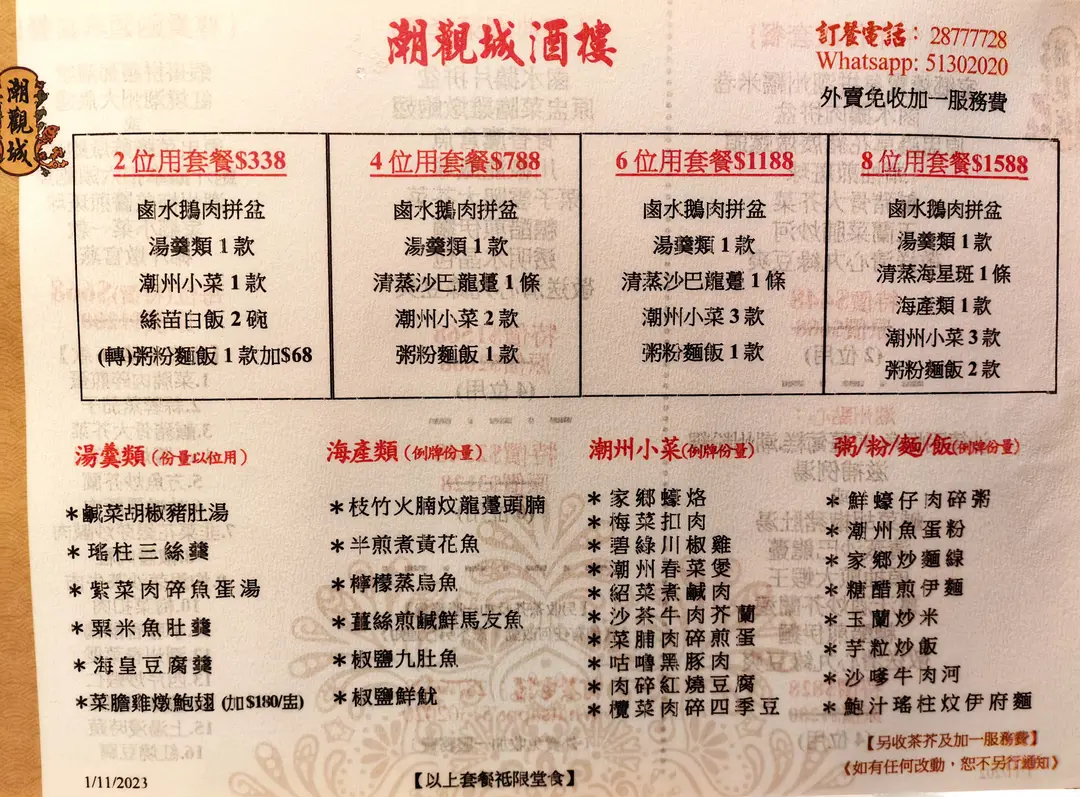 潮觀城酒樓
訂餐電話：28777728
Whatsapp: 51302020
外賣免收加一服務費
潮觀城
2 位用套餐$338
鹵水鵝肉拼盆
湯羹類 1 款
潮州小菜 1 款
絲苗白飯 2 碗
(轉)粥粉麵飯 1 款加$68
4 位用套餐$788
鹵水鵝肉拼盆
湯羹類 1 款
清蒸沙巴龍躉 1 條
潮州小菜 2 款
粥粉麵飯 1 款
6 位用套餐$1188
鹵水鵝肉拼盆
湯羹類 1 款
清蒸沙巴龍躉 1 條
潮州小菜 3 款
粥粉麵飯 1 款
8 位用套餐$1588
鹵水鵝肉拼盆
湯羹類 1 款
清蒸海星斑 1 條
海產類 1 款
潮州小菜 3 款
粥粉麵飯 2 款
湯羹類 (份量以位用)
*鹹菜胡椒豬肚湯
*瑤柱三絲羹
*紫菜肉碎魚蛋湯
*粟米魚肚羹
*海皇豆腐羹
*菜膽雞燉鮑翅 (加$180/盅)
海產類 (例牌份量)
*枝竹火腩炆龍躉頭腩
*半煎煮黃花魚
*檸檬蒸烏魚
*薑絲煎鹹鮮馬友魚
*椒鹽九肚魚
*椒鹽鮮魷
潮州小菜(例牌份量)
*家鄉蠔烙
*梅菜扣肉
*碧綠川椒雞
*潮州春菜煲
*紹菜煮鹹肉
*沙茶牛肉芥蘭
*菜脯肉碎煎蛋
*咕嚕黑豚肉
*肉碎紅燒豆腐
*欖菜肉碎四季豆
粥/粉/麵/飯(例牌份量)
*鮮蠔仔肉碎粥
*潮州魚蛋粉
*家鄉炒麵線
*糖醋煎伊麵
*玉蘭炒米
*芋粒炒飯
*沙嗲牛肉河
*鮑汁瑤柱炆伊府麵
【另收茶芥及加一服務費】
《如有任何改動，恕不另行通知》
1/11/2023
【以上套餐祗限堂食】